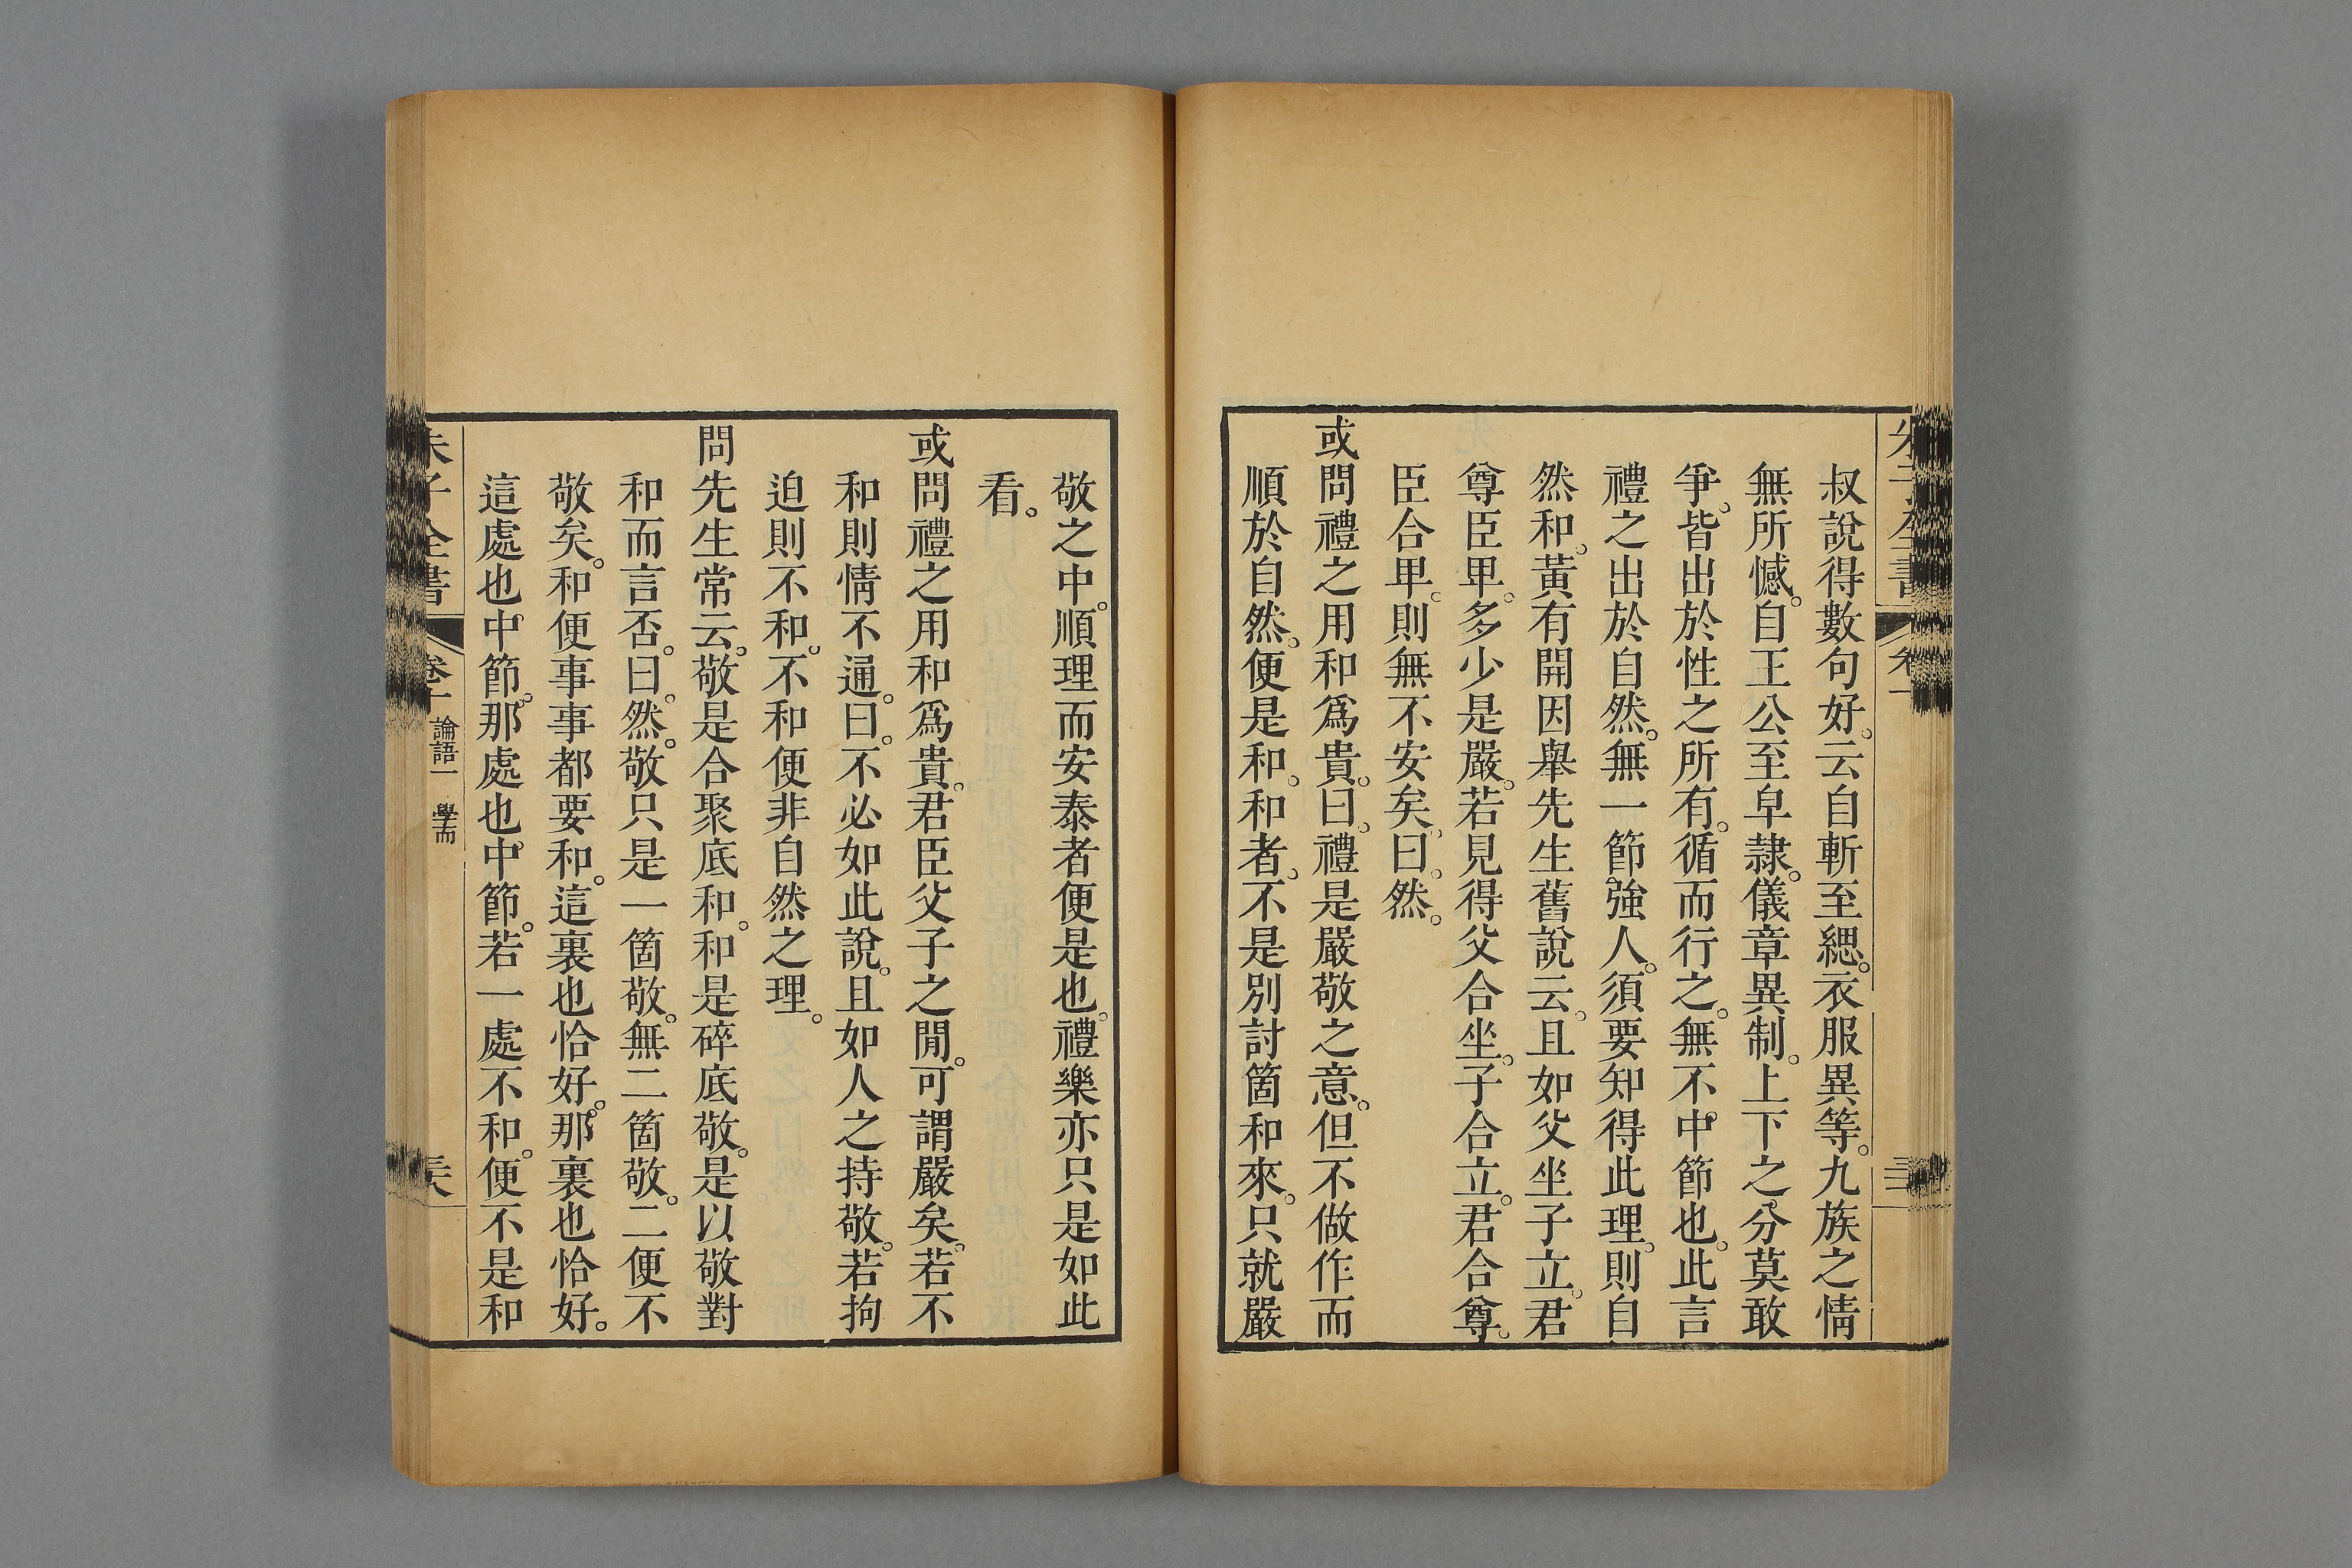 叔說得數句好。云自斬至緦。衣服異等。九族之情
無所憾。自王公至皁隷。儀章異制。上下之分莫敢
爭。皆出於性之所有。循而行之。無不中節也。此言
禮之出於自然。無一節強人。須要知得此理。則自
然和。黃有開因舉先生舊說云。且如父坐子立。君
尊臣𤰞。多少是嚴。若見得父合坐。子合立。君合尊。
臣合𤰞。則無不安矣。曰。然。
或問禮之用和爲貴。曰。禮是嚴敬之意。但不做作而
順於自然。便是和。和者。不是別討箇和來。只就嚴
敬之中。順理而安泰者便是也。禮樂亦只是如此
看。
或問禮之用和爲貴。君臣父子之閒。可謂嚴矣。若不
和則情不通。曰。不必如此說。且如人之持敬。若拘
迫則不和。不和便非自然之理。
問先生常云。敬是合聚底和。和是碎底敬。是以敬對
和而言否。曰。然。敬只是一箇敬。無二箇敬。二便不
敬矣。和便事事都要和。這裏也恰好。那裏也恰好。
這處也中節。那處也中節。若一處不和。便不是和
朱子全書
卷十
論語一 學而